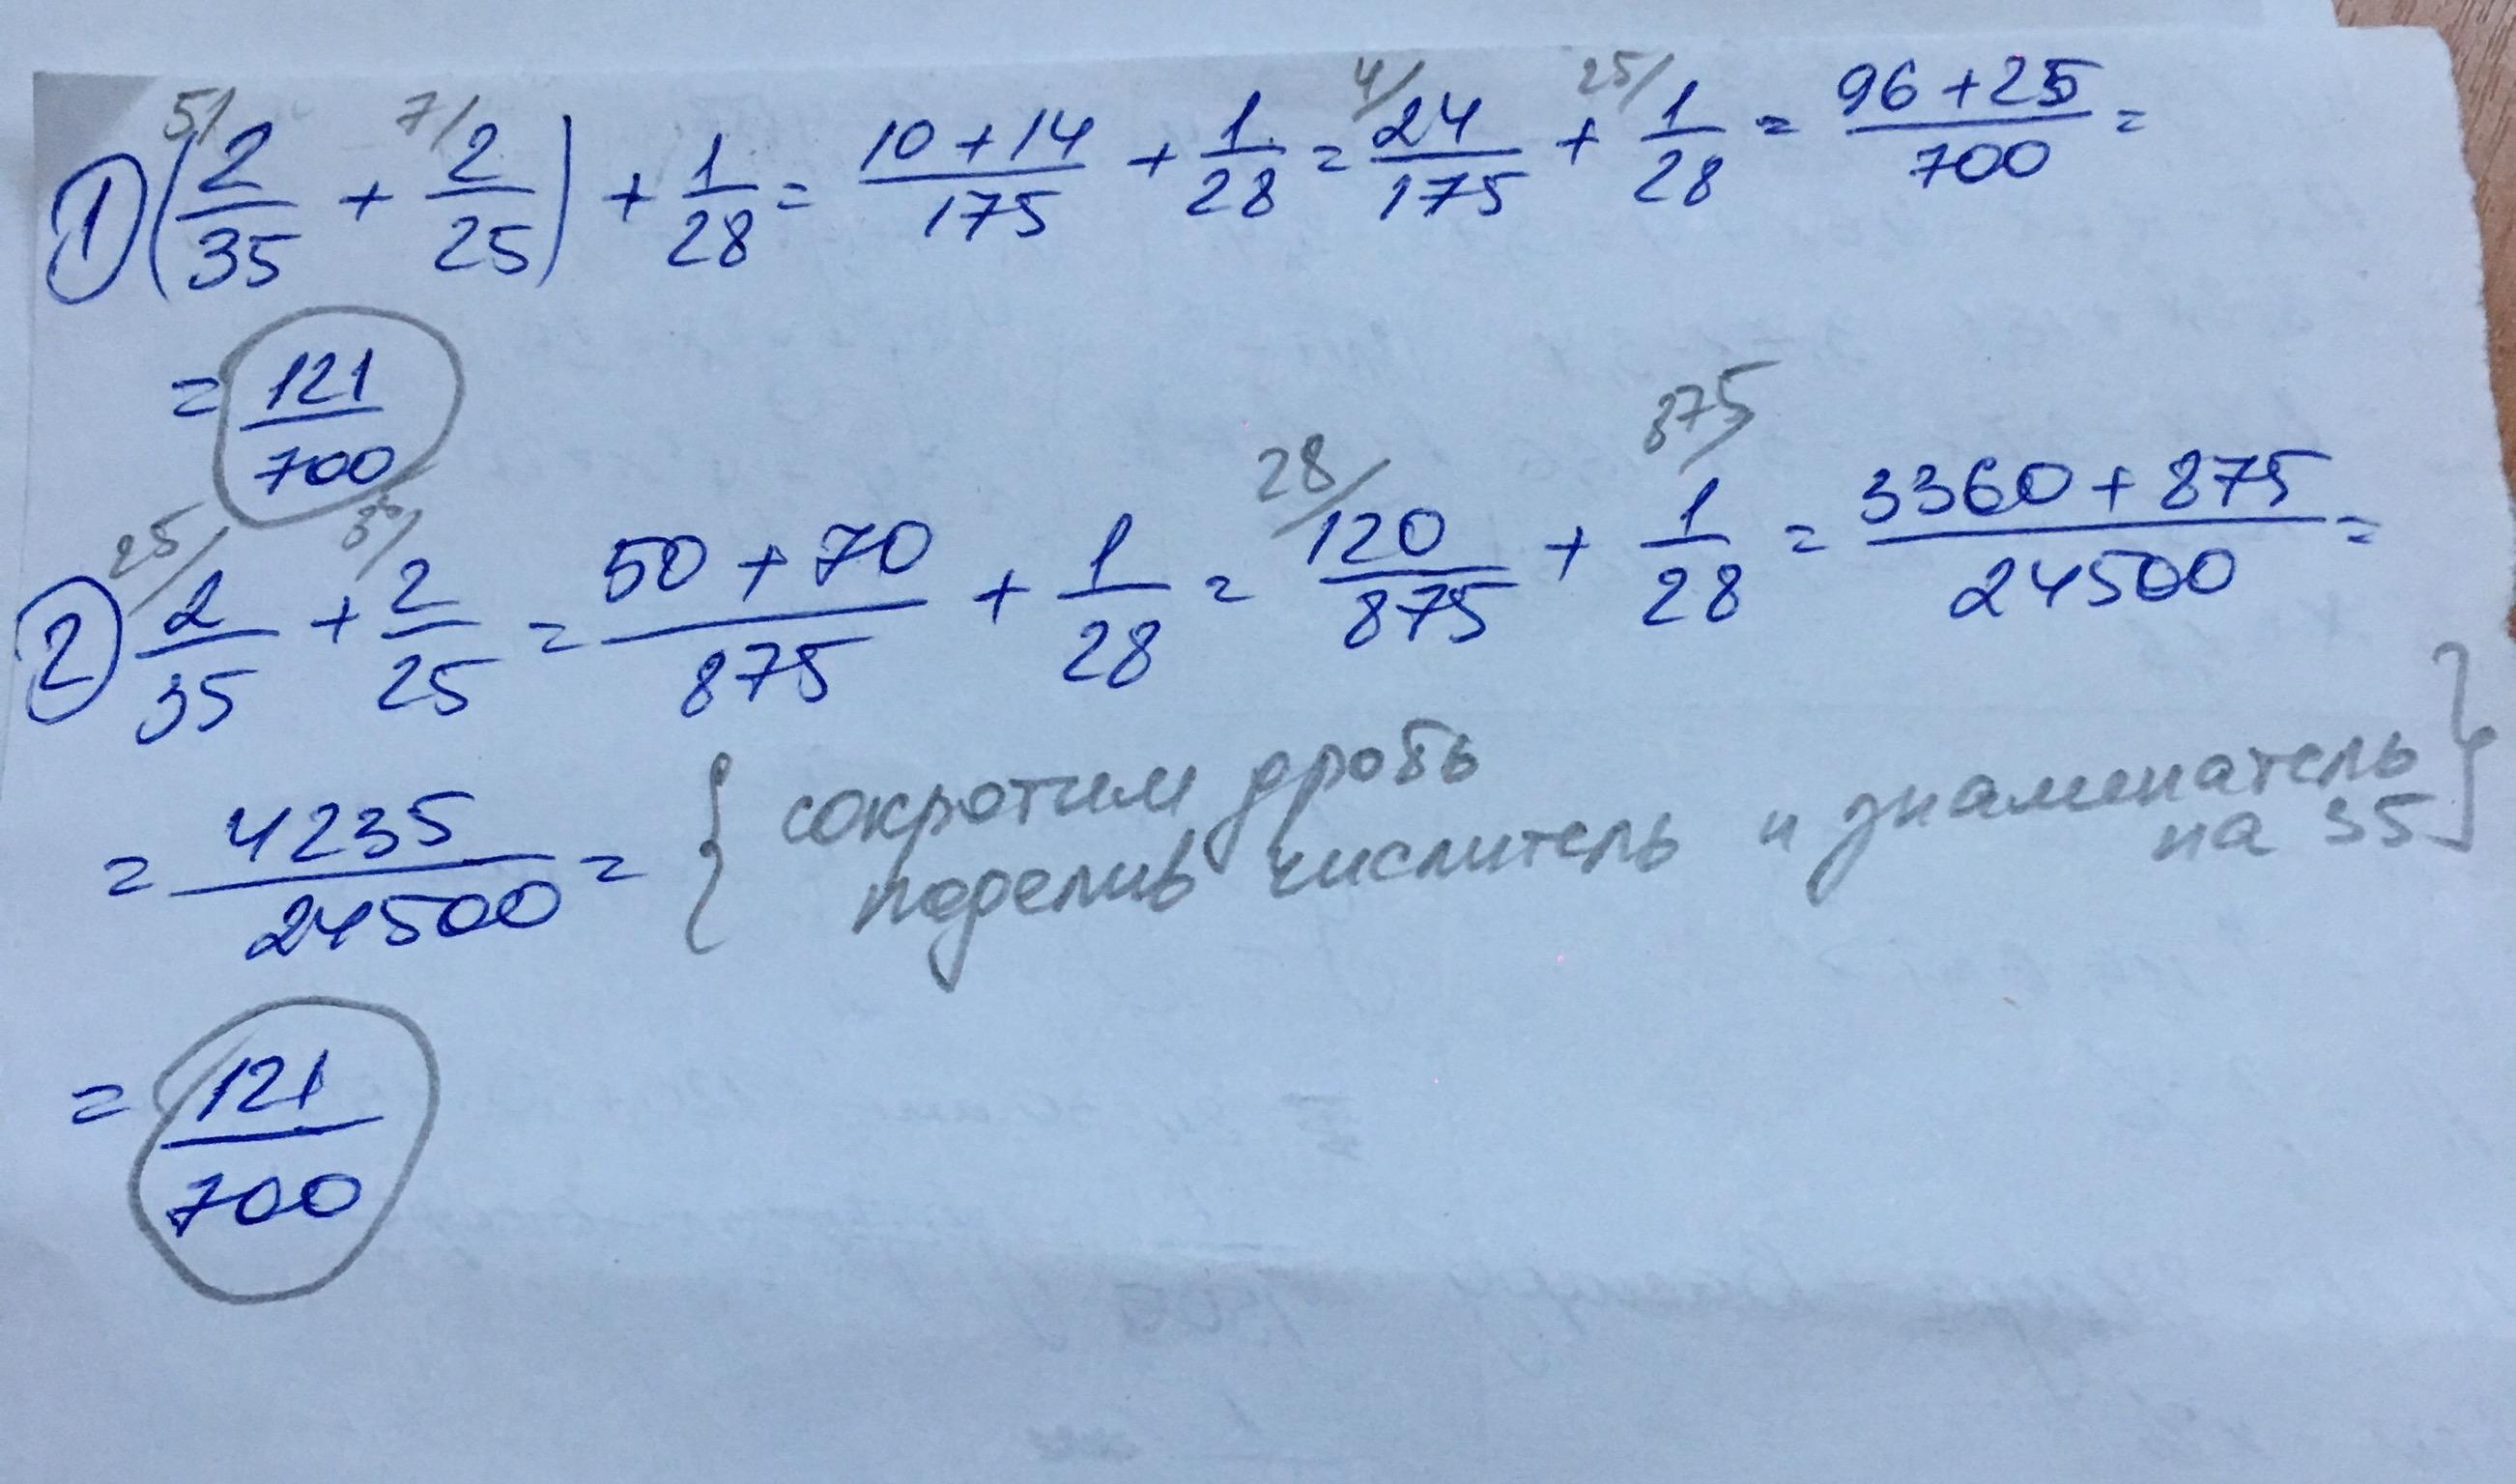 ① (5/ 2/35 + 7/ 2/25) + 1/28 = (10 + 14)/175 + 1/28 = 4/ 24/175 + 25/ 1/28 = (96 + 25)/700 =
= 121/700
② 25/ 2/35 + 35/ 2/25 = (50 + 70)/875 + 1/28 = 28/ 120/875 + 875/ 1/28 = (3360 + 875)/24500 =
= 4235/24500 = { сокротим дробь
поделив числитель и знаменатель
на 35 }
= 121/700